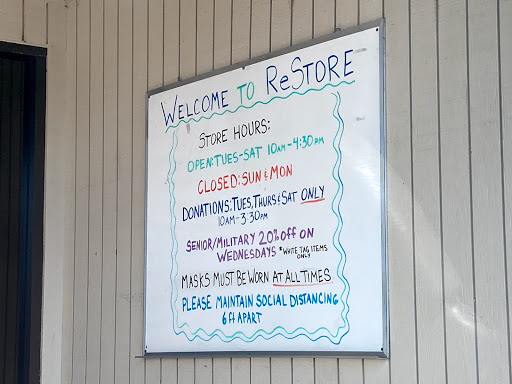 WELCOME TO ReSTORE
STORE HOURS:
OPEN: TUES-SAT 10AM-4:30PM
CLOSED: SUN & MON
DONATIONS: TUES, THURS & SAT ONLY
10AM-3:30PM
SENIOR/MILITARY 20% off ON
WEDNESDAYS *WHITE TAG ITEMS
ONLY
MASKS MUST BE WORN AT ALL TIMES
PLEASE MAINTAIN SOCIAL DISTANCING
6 ft APART